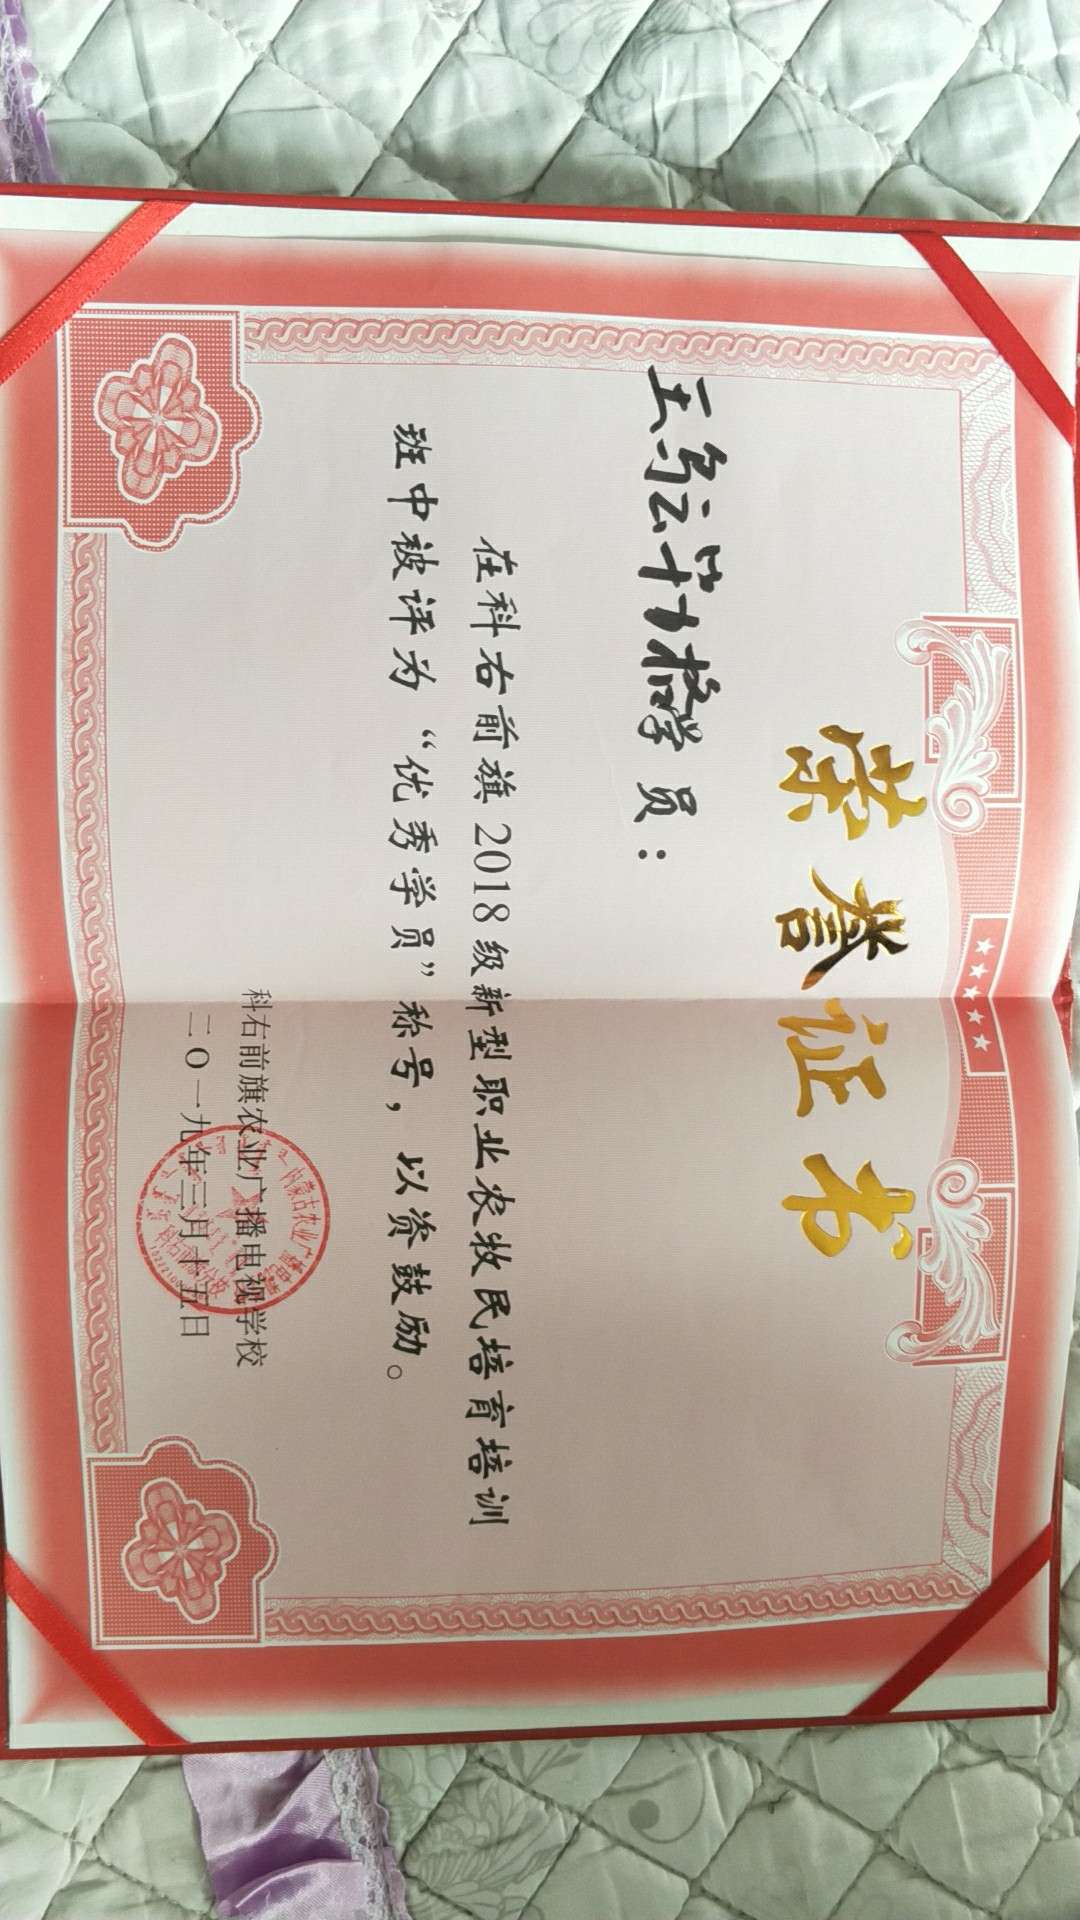 荣誉证书
王乌云其木格学员：
在科右前旗2018级新型职业农牧民培育培训
班中被评为“优秀学员”称号，以资鼓励。
科右前旗农业广播电视学校
二〇一九年三月十五日
内蒙古农业广播电视